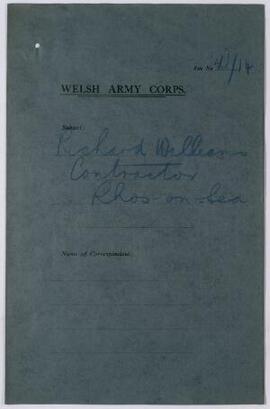 File No
WELSH ARMY CORPS.
Subject:
Richard Williams
Contractor
Rhos-on-Sea
Name of Correspondent: